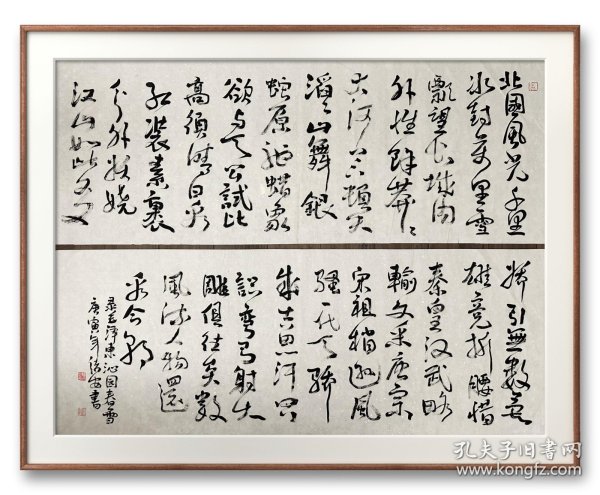 北國風光千里
冰封萬里雪
飄望长城内
外惟餘莽〻
大河上下頓失
滔〻山舞銀
蛇原馳蜡象
欲与天公試比
高須晴日看
红装素裹
分外妖娆
江山如此多
嬌引無數英
雄竞折腰惜
秦皇汉武略
輸文采唐宗
宋祖稍遜風
骚一代天骄
成吉思汗只
識弯弓射大
雕俱往矣数
風流人物還
看今朝
录毛泽東沁园春雪
庚寅年書
孔夫子旧书网
www.kongfz.com